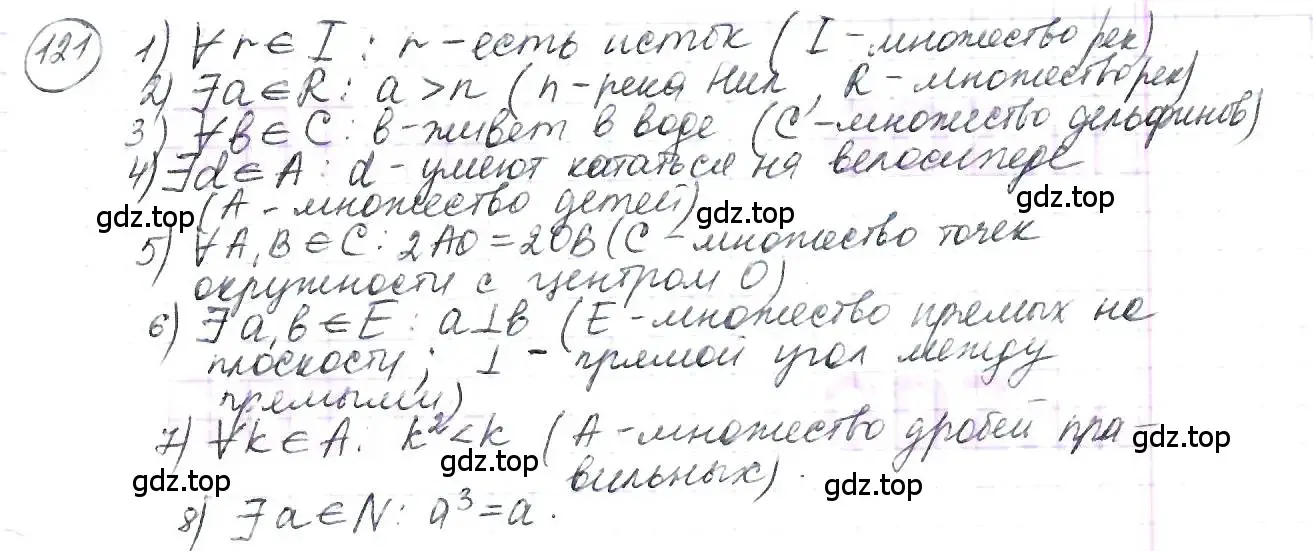 121 1) ∀r∈I : r - есть исток (I - множество рек)
2) ∃a∈R : a > n (n - река Нил, R - множество рек)
3) ∀в∈C : в - живет в воде (C - множество дельфинов)
4) ∃d∈A : d - умеют кататься на велосипеде
(A - множество детей)
gdz.top gdz.top
5) ∀A, B ∈ C : 2AO = 2OB (C - множество точек
окружности с центром O)
6) ∃a, в ∈ E : a⊥в (E - множество прямых на
плоскости; ⊥ - прямой угол между
прямыми)
7) ∀k∈A : k² < k (A - множество дробей пра-
вильных).
gdz.top gdz.top
8) ∃a∈N : a³ = a.
gdz.top gdz.top